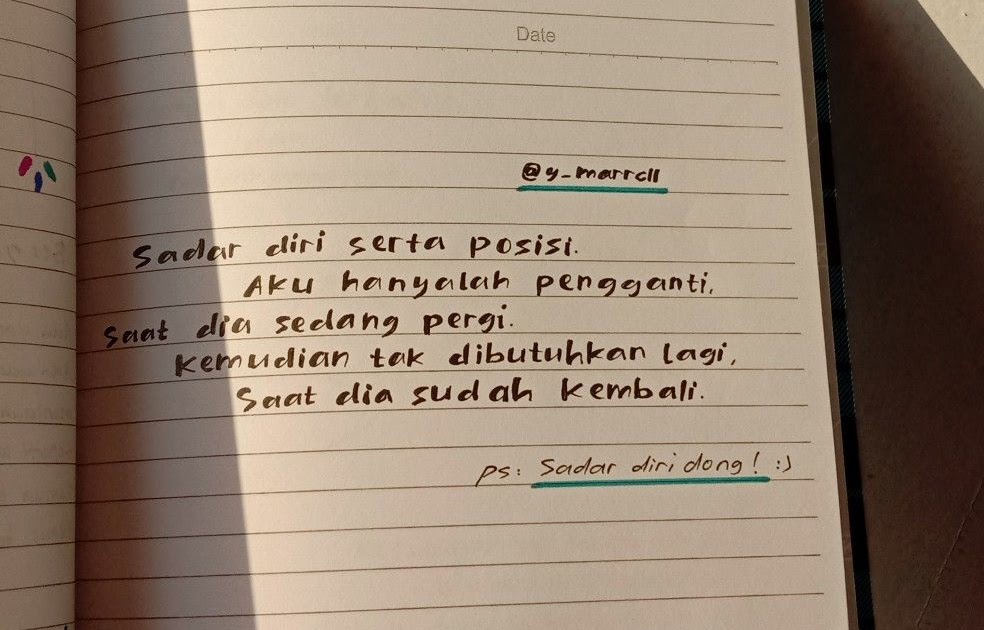 Date
@y_marrell
Sadar diri serta posisi.
Aku hanyalah pengganti,
Saat dia sedang pergi.
Kemudian tak dibutuhkan lagi,
Saat dia sudah kembali.
ps: Sadar diri dong! :)